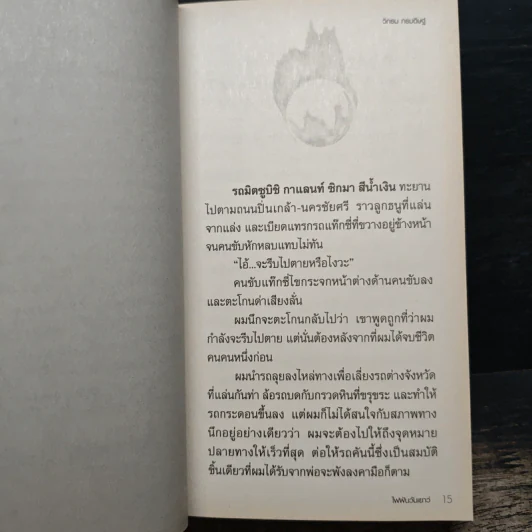 วิกรม กรมดิษฐ์
รถมิตซูบิชิ กาแลนท์ ซิกมา สีน้ำเงิน ทะยาน
ไปตามถนนปิ่นเกล้า-นครชัยศรี ราวลูกธนูที่แล่น
จากแล่ง และเบียดแทรกรถแท็กซี่ที่ขวางอยู่ข้างหน้า
จนคนขับหักหลบแทบไม่ทัน
“ไอ้...จะรีบไปตายหรือไงวะ”
คนขับแท็กซี่ไขกระจกหน้าต่างด้านคนขับลง
และตะโกนด่าเสียงลั่น
ผมนึกจะตะโกนกลับไปว่า เขาพูดถูกที่ว่าผม
กำลังจะรีบไปตาย แต่นั่นต้องหลังจากที่ผมได้จบชีวิต
คนคนหนึ่งก่อน
ผมนำรถลุยลงไหล่ทางเพื่อเลี่ยงรถต่างจังหวัด
ที่แล่นกันท่า ล้อรถบดกับกรวดหินที่ขรุขระ และทำให้
รถกระดอนขึ้นลง แต่ผมก็ไม่ได้สนใจกับสภาพทาง
นึกอยู่อย่างเดียวว่า ผมจะต้องไปให้ถึงจุดหมาย
ปลายทางให้เร็วที่สุด ต่อให้รถคันนี้ซึ่งเป็นสมบัติ
ชิ้นเดียวที่ผมได้รับจากพ่อจะพังลงคามือก็ตาม
ไฟฝันวันเยาว์ 15